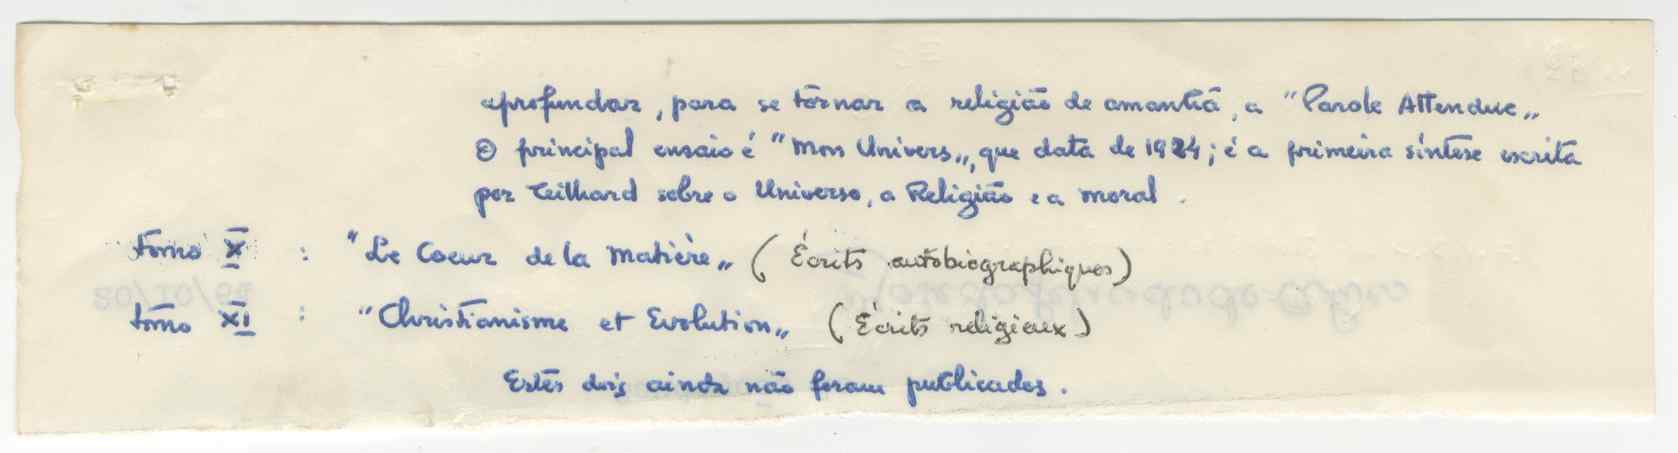 aprofundar, para se tornar a religião de amanhã, a "Parole Attendue„
O principal ensaio é "Mon Univers„, que data de 1924; é a primeira síntese escrita
por Teilhard sobre o Universo, a Religião e a moral.
tomo X : "Le Coeur de la Matière„ (Écrits autobiographiques)
tomo XI : "Christianisme et Evolution„ (Écrits religieux)
Estes dois ainda não foram publicados.